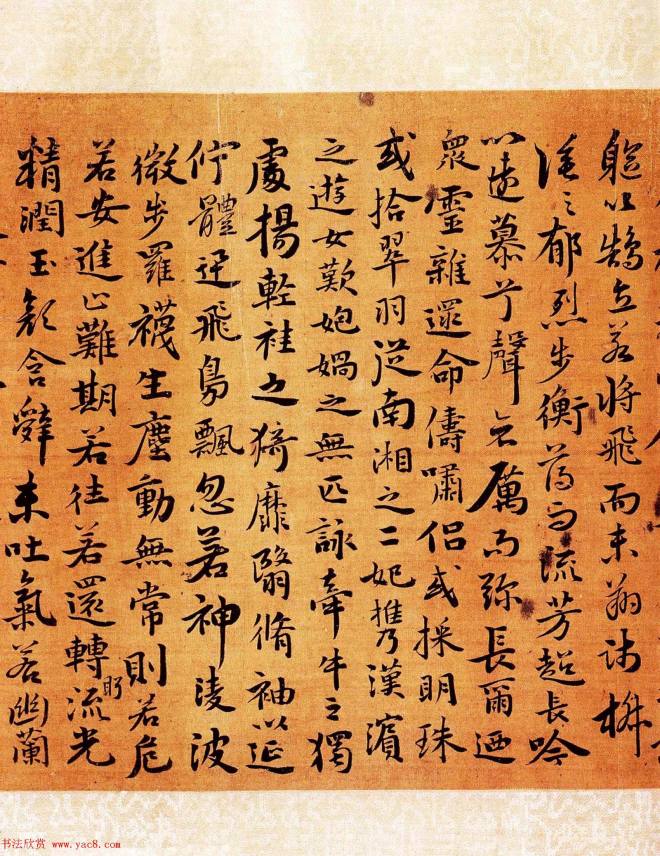 軀以鵠立若将飛而未翔踐椒
塗之郁烈步衡薄而流芳超長吟
以遠慕兮聲哀厲而弥長爾迺
衆靈雜遝命儔嘯侶或採明珠
或拾翠羽從南湘之二妃攜漢濱
之遊女歎媧之無匹詠牽牛之獨
處揚輕袿之猗靡翳脩袖以延
佇體迅飛鳧飄忽若神淩波
微步羅襪生塵動無常則若危
若安進止難期若往若還轉眄流光
精潤玉顏含辭未吐氣若幽蘭
书法欣赏 www.yac8.com